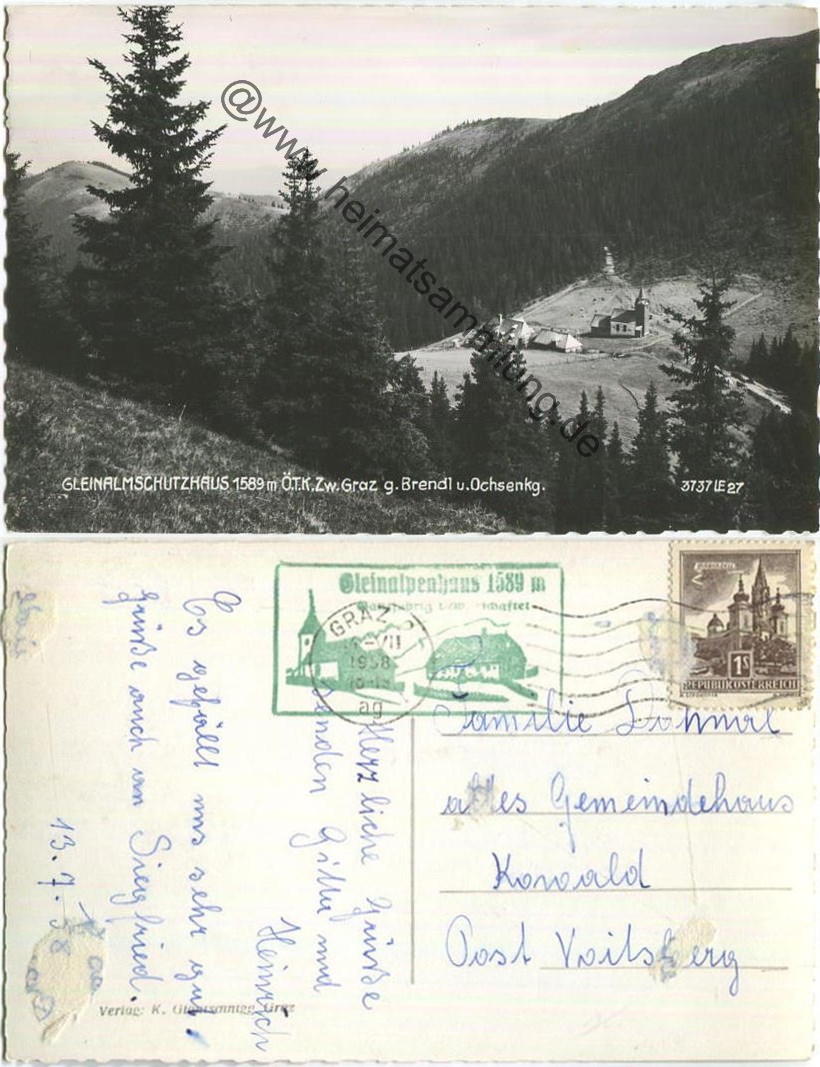 @www.heimatsammlung.de
GLEINALMSCHUTZHAUS 1589m Ö.T.K.Zw.Graz g.Brendl u.Ochsenkg.
3737 LE 27
Gleinalpenhaus 1589 m
GRAZ 2
VII
1958
ag
1S
REPUBLIK ÖSTERREICH
13.7.58
Es gefällt uns sehr gut.
Grüße auch an Siegfried.
Herzliche Grüße
senden Gitti und
Heinrich
Familie Dohnal
altes Gemeindehaus
Kowald
Post Voitsberg
Verlag: K. Graz